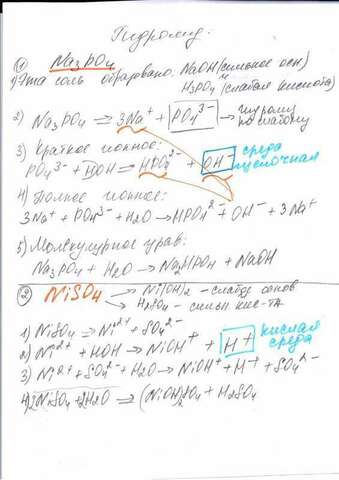 Гидролиз.
① Na3PO4
1) Эта соль образована NaOH (сильное осн)
и H3PO4 (слабая кислота)
2) Na3PO4 ⇌ 3Na⁺ + PO4³⁻ → гидролиз по слабому
3) Краткое ионное:
PO4³⁻ + HOH ⇌ HPO4²⁻ + OH⁻ среда щелочная
4) Полное ионное:
3Na⁺ + PO4³⁻ + H2O → HPO4²⁻ + OH⁻ + 3Na⁺
5) Молекулярное урав:
Na3PO4 + H2O → Na2HPO4 + NaOH
② NiSO4 → Ni(OH)2 - слабое основ
→ H2SO4 - сильн кис-та
1) NiSO4 ⇌ Ni²⁺ + SO4²⁻
2) Ni²⁺ + HOH → NiOH⁺ + H⁺ кислая среда
3) Ni²⁺ + SO4²⁻ + H2O → NiOH⁺ + H⁺ + SO4²⁻
4) 2NiSO4 + 2H2O ⇌ (NiOH)2SO4 + H2SO4